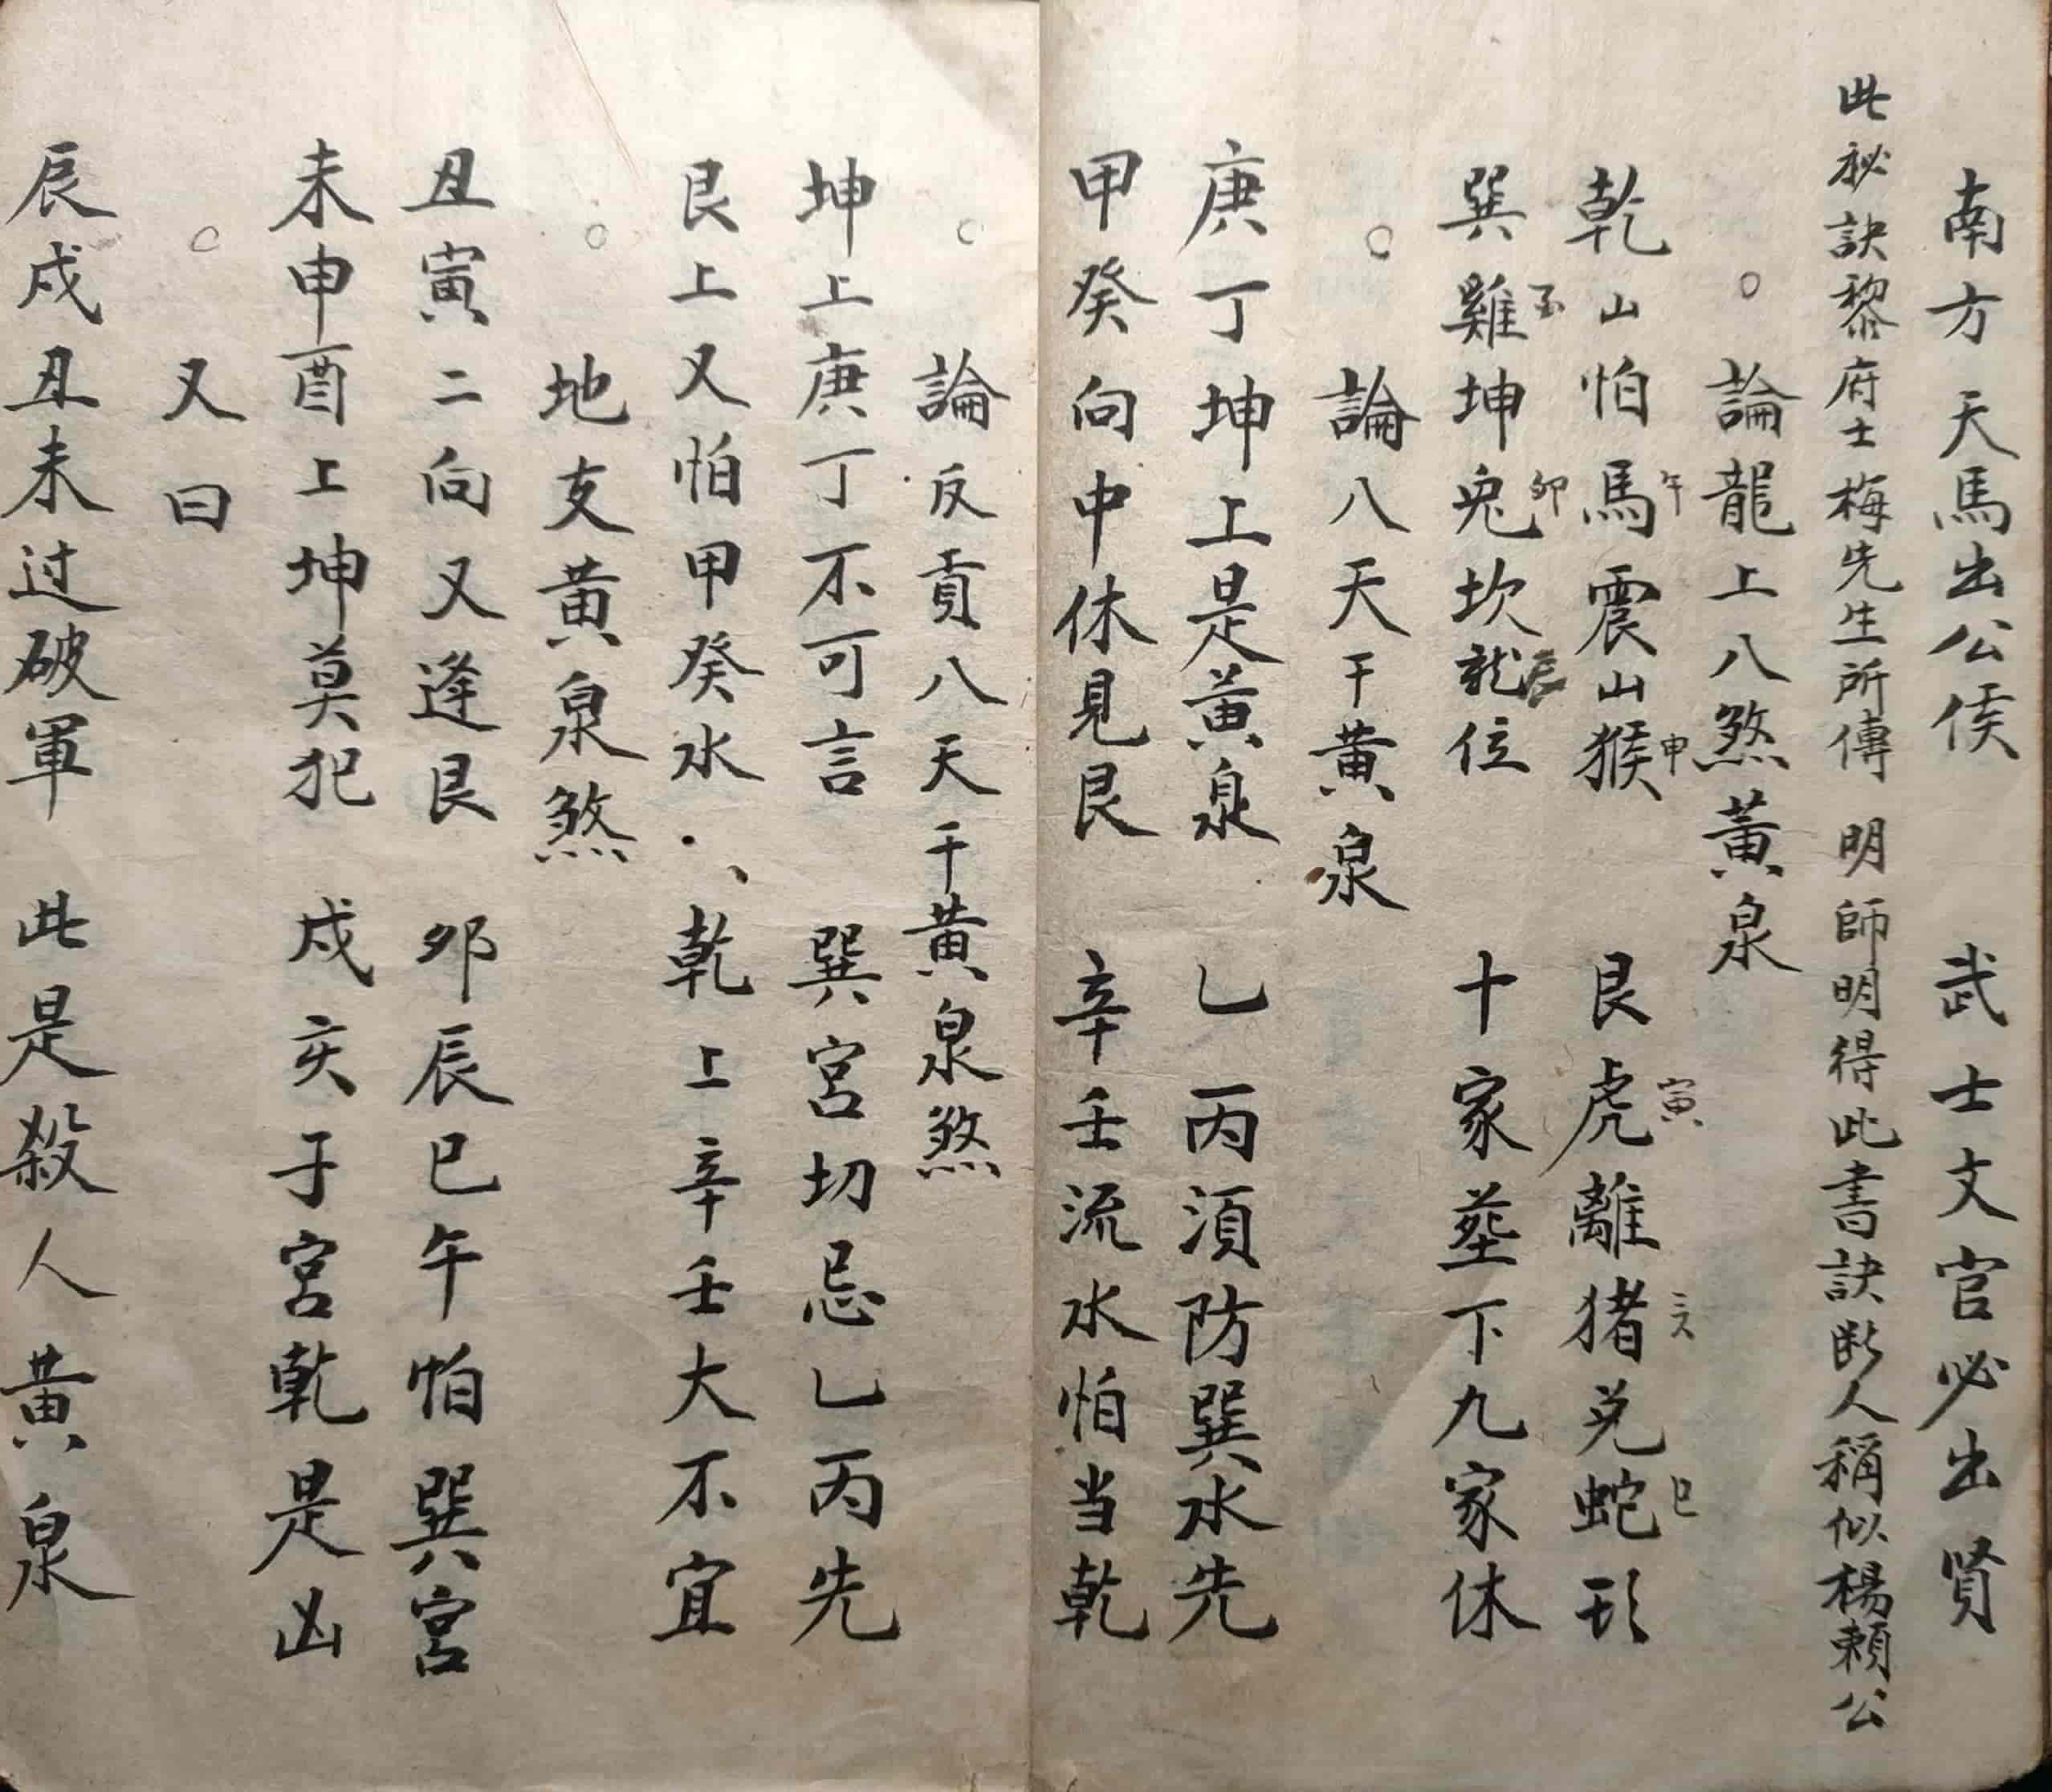 南方天馬出公侯　武士文官必出賢
此秘訣黎府士梅先生所傳　明師明得此書訣断人稱似楊賴公
○　論龍上八煞黄泉
乾山怕馬午震山猴申　艮虎寅離猪亥兌蛇巳形
巽雞坤兎卯坎龍辰位　十家塟下九家休
○　論八天干黄泉
庚丁坤上是黄泉　乚丙須防巽水先
甲癸向中休見艮　辛壬流水怕当乾
○　論反貢八天干黄泉煞
坤上庚丁不可言　巽宮切忌乚丙先
艮上又怕甲癸水　乾上辛壬大不宜
○　地支黄泉煞
丑寅二向又逢艮　夘辰巳午怕巽宮
未申酉上坤莫犯　戍亥子宮乾是凶
○　又曰
辰戍丑未过破軍　此是殺人黄泉